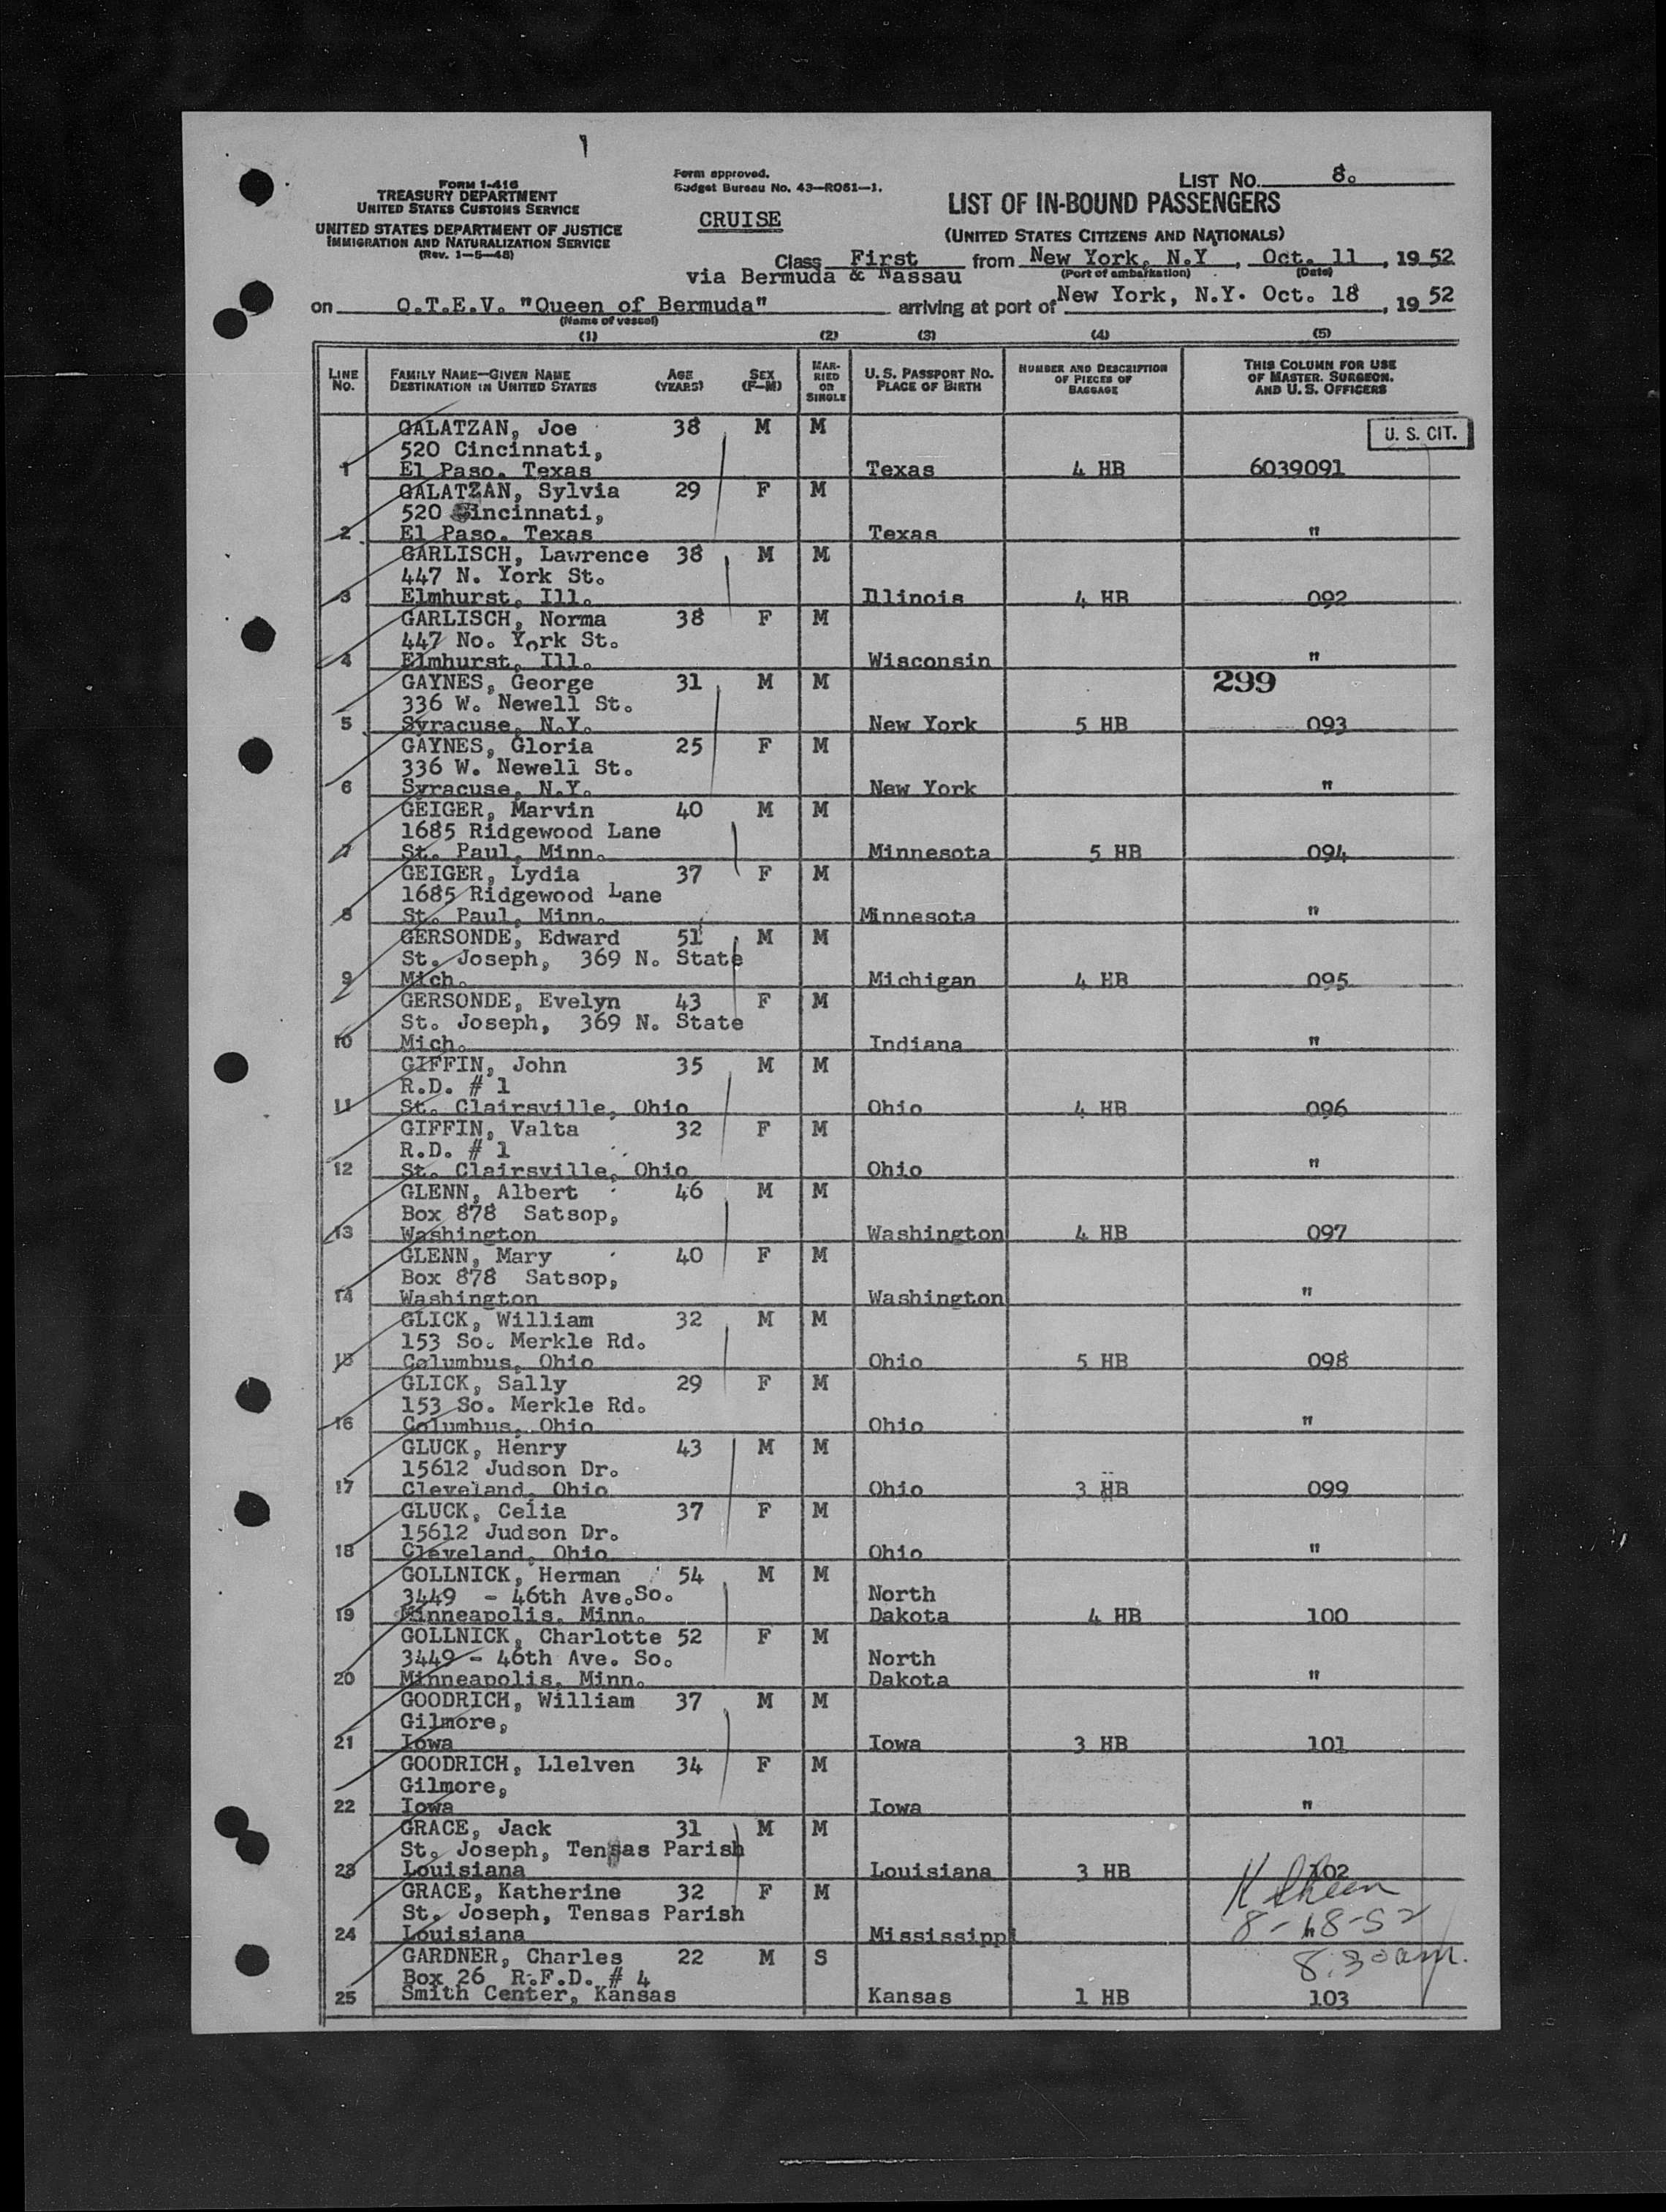 FORM I-416
TREASURY DEPARTMENT
UNITED STATES CUSTOMS SERVICE
UNITED STATES DEPARTMENT OF JUSTICE
IMMIGRATION AND NATURALIZATION SERVICE
(Rev. 1—5—48)
Form approved.
Budget Bureau No. 43—RO61—1.
CRUISE
LIST NO. 8.
LIST OF IN-BOUND PASSENGERS
(UNITED STATES CITIZENS AND NATIONALS)
Class First from New York, N.Y., Oct. 11, 19 52
via Bermuda & Nassau (Port of embarkation) (Date)
on Q.T.E.V. "Queen of Bermuda" arriving at port of New York, N.Y. Oct. 18, 19 52
(Name of vessel)
(1) (2) (3) (4) (5)
LINE NO. FAMILY NAME—GIVEN NAME DESTINATION IN UNITED STATES AGE (YEARS) SEX (F—M) MARRIED OR SINGLE U. S. PASSPORT NO. PLACE OF BIRTH NUMBER AND DESCRIPTION OF PIECES OF BAGGAGE THIS COLUMN FOR USE OF MASTER, SURGEON, AND U. S. OFFICERS
GALATZAN, Joe 38 M M U. S. CIT.
520 Cincinnati,
1 El Paso, Texas Texas 4 HB 6039091
GALATZAN, Sylvia 29 F M
520 Cincinnati,
2 El Paso, Texas Texas "
GARLISCH, Lawrence 38 M M
447 N. York St.
3 Elmhurst, Ill. Illinois 4 HB 092
GARLISCH, Norma 38 F M
447 No. York St.
4 Elmhurst, Ill. Wisconsin "
GAYNES, George 31 M M 299
336 W. Newell St.
5 Syracuse, N.Y. New York 5 HB 093
GAYNES, Gloria 25 F M
336 W. Newell St.
6 Syracuse, N.Y. New York "
GEIGER, Marvin 40 M M
1685 Ridgewood Lane
7 St. Paul, Minn. Minnesota 5 HB 094
GEIGER, Lydia 37 F M
1685 Ridgewood Lane
8 St. Paul, Minn. Minnesota "
GERSONDE, Edward 51 M M
St. Joseph, 369 N. State
9 Mich. Michigan 4 HB 095
GERSONDE, Evelyn 43 F M
St. Joseph, 369 N. State
10 Mich. Indiana "
GIFFIN, John 35 M M
R.D. # 1
11 St. Clairsville, Ohio Ohio 4 HB 096
GIFFIN, Valta 32 F M
R.D. # 1
12 St. Clairsville, Ohio Ohio "
GLENN, Albert 46 M M
Box 878 Satsop,
13 Washington Washington 4 HB 097
GLENN, Mary 40 F M
Box 878 Satsop,
14 Washington Washington "
GLICK, William 32 M M
153 So. Merkle Rd.
15 Columbus, Ohio Ohio 5 HB 098
GLICK, Sally 29 F M
153 So. Merkle Rd.
16 Columbus, Ohio Ohio "
GLUCK, Henry 43 M M
15612 Judson Dr.
17 Cleveland, Ohio Ohio 3 HB 099
GLUCK, Celia 37 F M
15612 Judson Dr.
18 Cleveland, Ohio Ohio "
GOLLNICK, Herman 54 M M
3449 - 46th Ave.So. North
19 Minneapolis, Minn. Dakota 4 HB 100
GOLLNICK, Charlotte 52 F M
3449 - 46th Ave. So. North
20 Minneapolis, Minn. Dakota "
GOODRICH, William 37 M M
Gilmore,
21 Iowa Iowa 3 HB 101
GOODRICH, Llelven 34 F M
Gilmore,
22 Iowa Iowa "
GRACE, Jack 31 M M
St. Joseph, Tensas Parish
23 Louisiana Louisiana 3 HB 102
GRACE, Katherine 32 F M
St. Joseph, Tensas Parish 8-18-52
24 Louisiana Mississippi "
GARDNER, Charles 22 M S 8:30 am.
Box 26 R.F.D. # 4
25 Smith Center, Kansas Kansas 1 HB 103